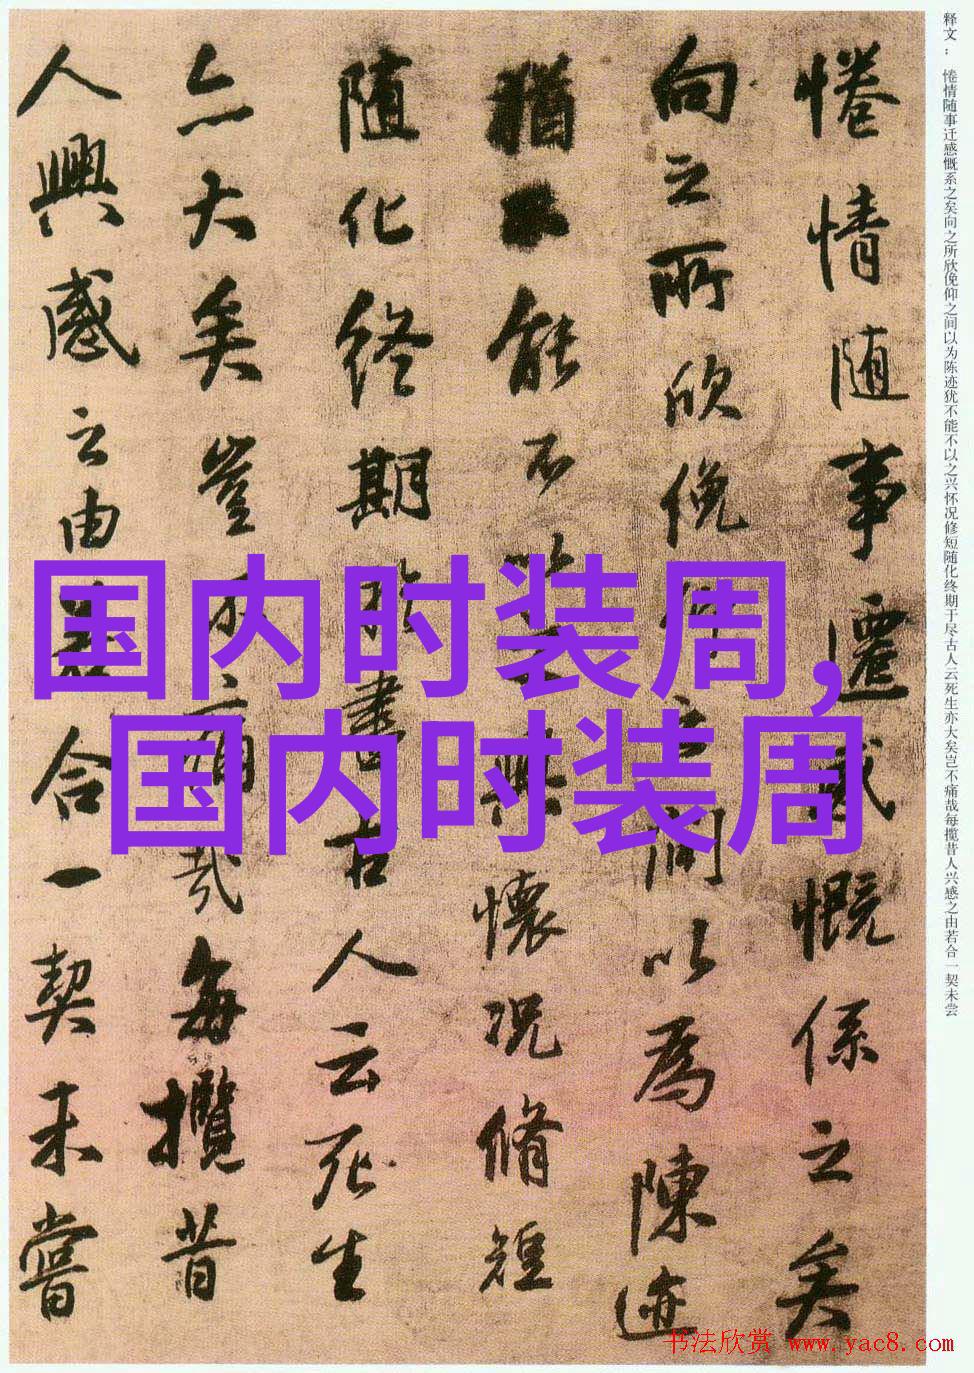 释文：惓情随事迁感慨系之矣向之所欣俛仰之间以为陈迹犹不能不以之兴怀况修短随化终期于尽古人云死生亦大矣岂不痛哉每揽昔人兴感之由若合一契未尝
惓情随事遷感慨係之矣
向之所欣俛仰之間以為陳迹
猶不能不以之興懷況脩短
随化終期於盡古人云死生
亦大矣豈不痛哉每攬昔
人興感之由若合一契未嘗
国内时装周,
国内时装周
书法欣赏 www.yac8.com